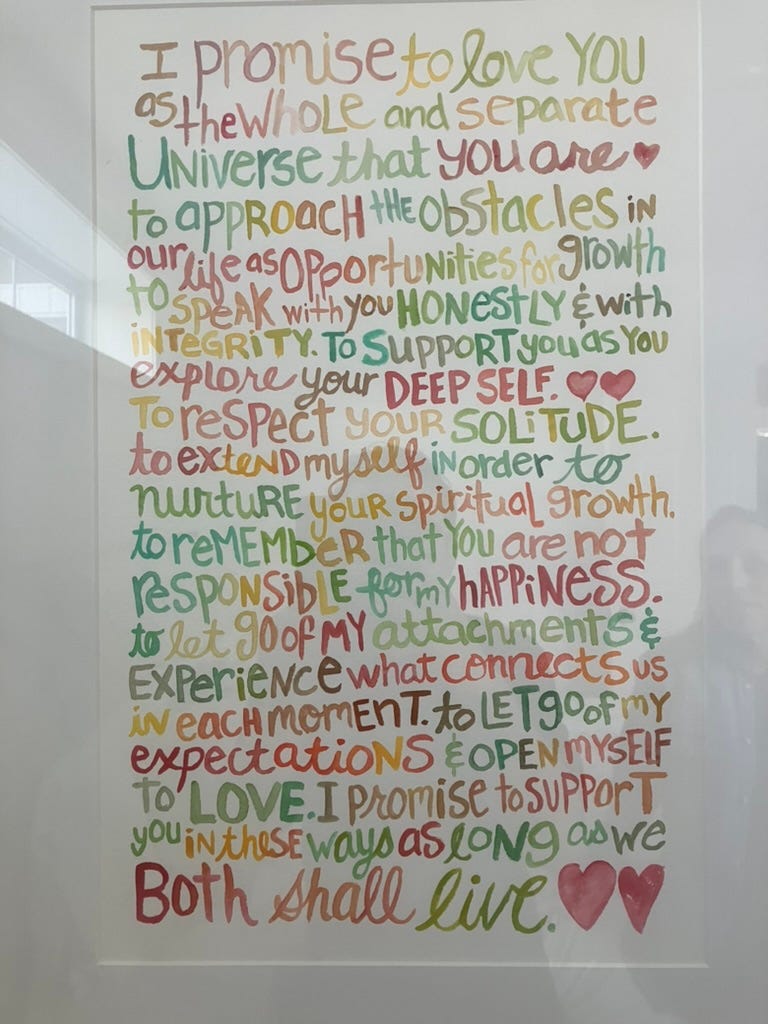 I promise to love YOU
as the WHOLE and separate
UNIVERSE that you are
to APPROACH THE ObStacles IN
our life as OPPortuNities for growth
to SPEAK with you HONEstLY & with
INTeGRiTY. To SUPPORT you as You
explore your DEEP SELF.
To resPect YOUR SOLiTUDE.
to extEND myself iN order to
nurtuRE your Spiritual growth.
to reMEMbER that You are not
responSiBLE for my hAPPiNESS.
to let go of MY attachments &
EXPeriENCE what connects us
in each momENT. to LET go of my
expectatioNS & OPEN MYSELF
TO LOVE. I Promise to SUPPORT
you in theSE ways as loNg as we
BOth shall live.